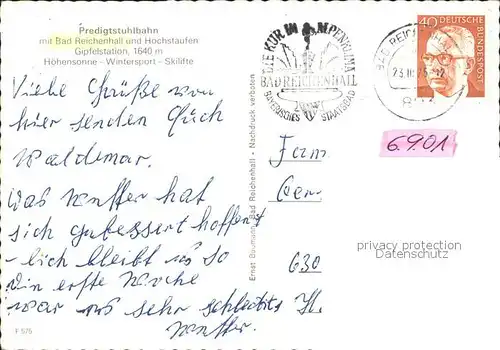 Predigtstuhlbahn
mit Bad Reichenhall und Hochstaufen
Gipfelstation, 1640 m
Höhensonne – Wintersport – Skilifte
DIE KUR IM ALPENKLIMA
BAD REICHENHALL
BAYERISCHES STAATSBAD
BAD REICHENHALL
23.11.75-12
40 DEUTSCHE
BUNDESPOST
6901
Viele Grüße von
hier senden Euch
Waldemar.
Das Wetter hat
sich gebessert hoffent
-lich bleibt es so
Die erste Woche
war es sehr schlechtes
Wetter.
Fam
630
Ernst Baumann, Bad Reichenhall - Nachdruck verboten
privacy protection
Datenschutz
F 575